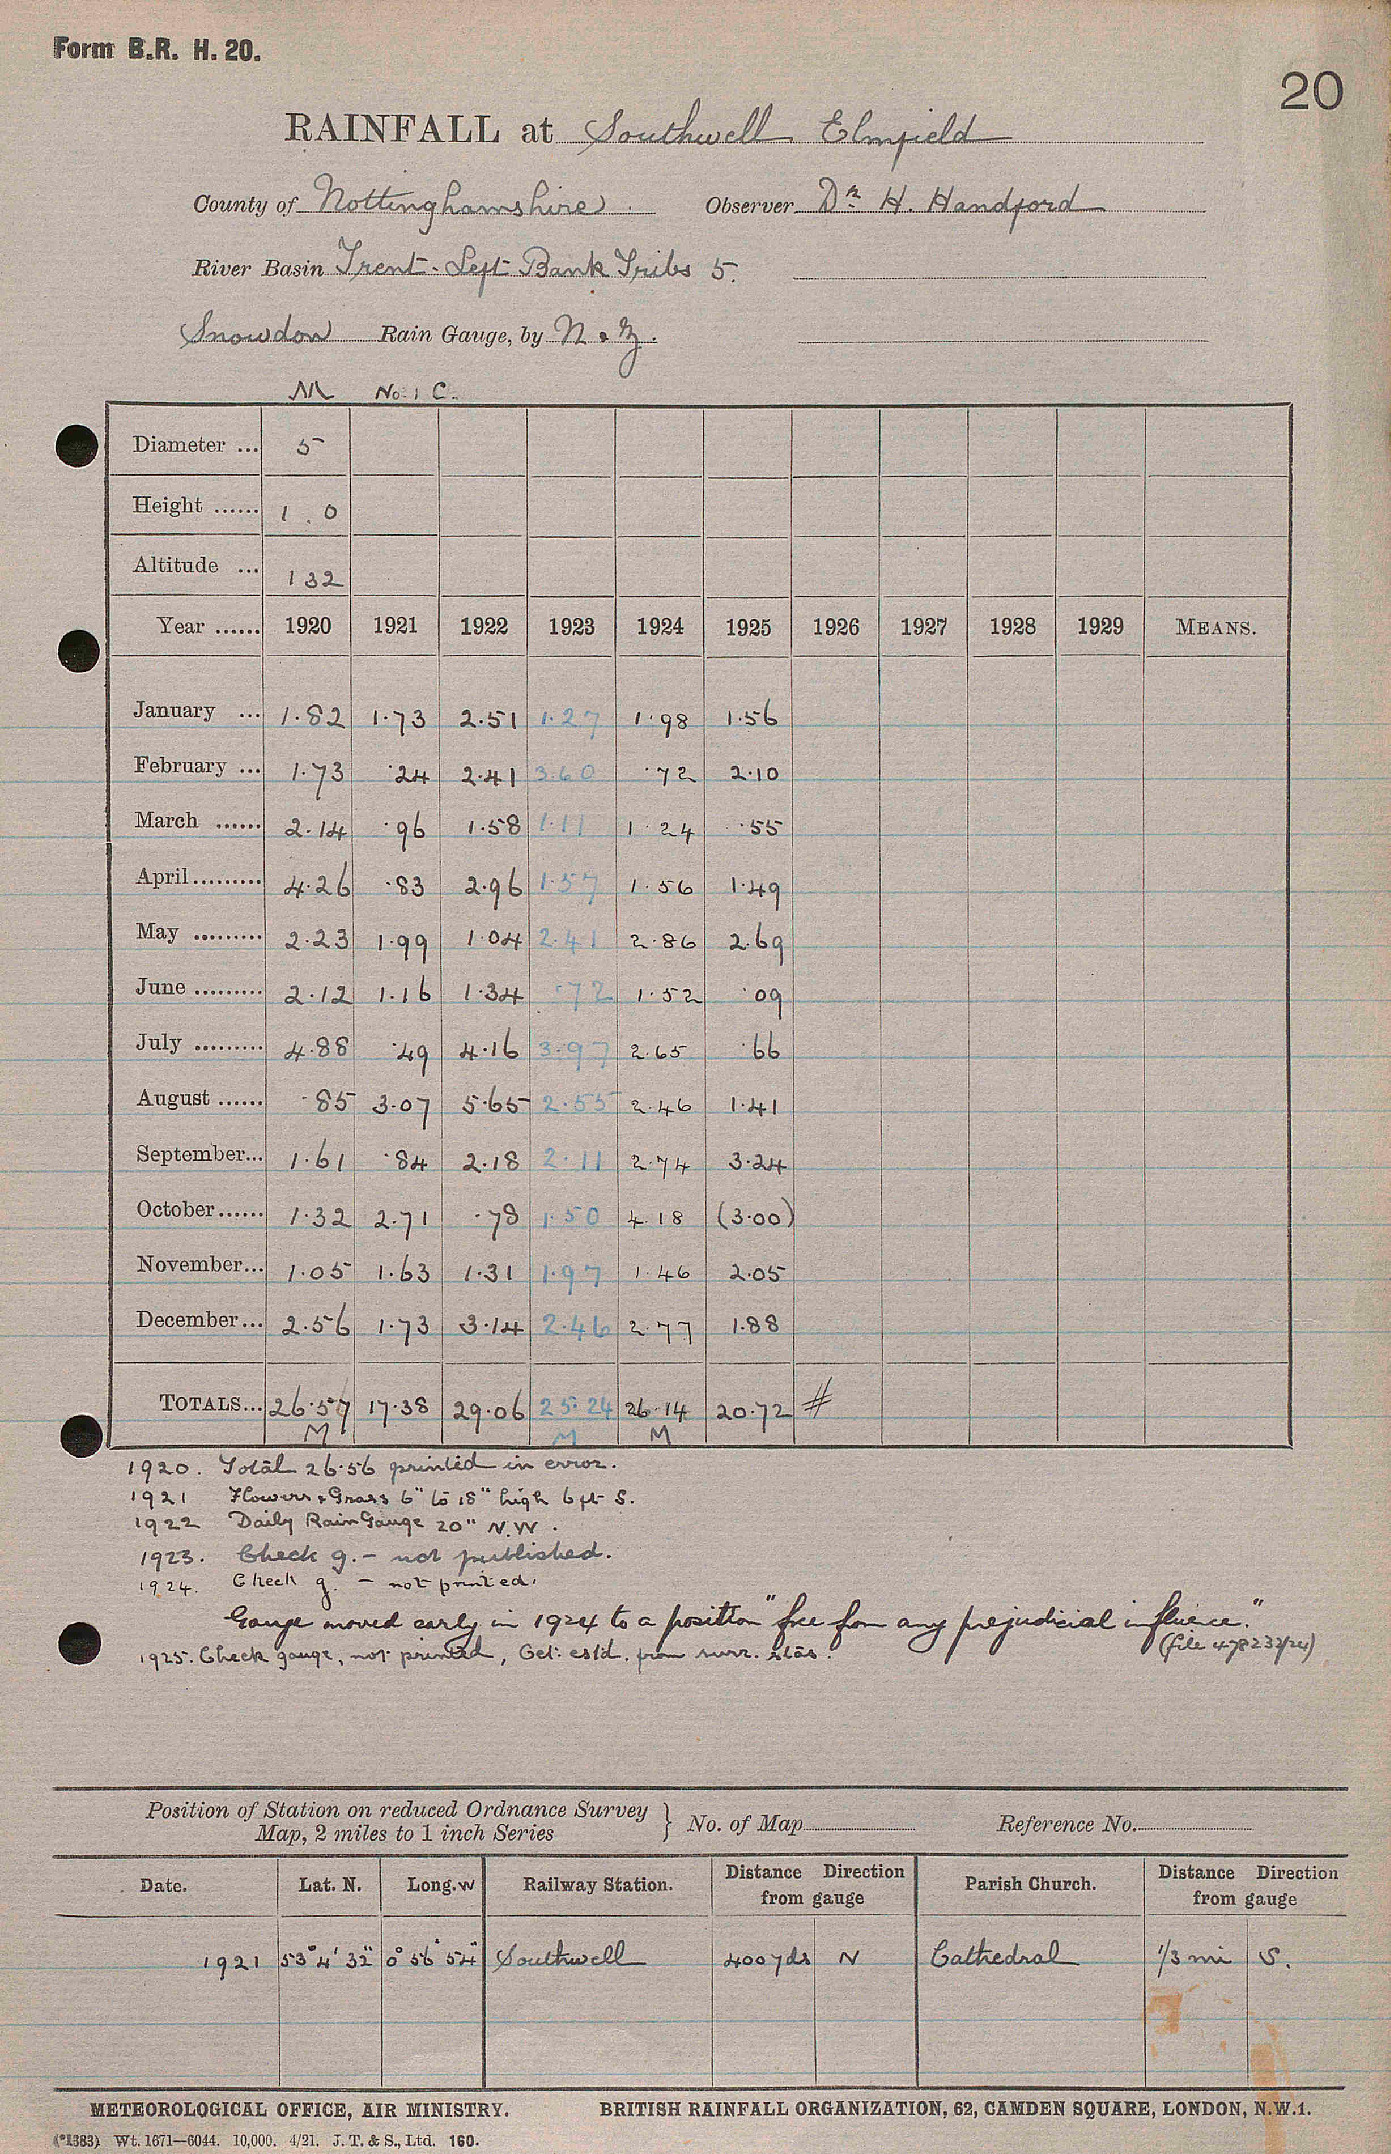 Form B.R. H. 20.
20
RAINFALL at Southwell Elmfield
County of Nottinghamshire. Observer Dr. H. Handford
River Basin Trent - Left Bank Tribs 5.
Snowdon Rain Gauge, by N & Z.
M No. 1 C.
Diameter ... 5
Height ...... 1 . 0
Altitude ... 132
Year ...... 1920 1921 1922 1923 1924 1925 1926 1927 1928 1929 MEANS.
January ... 1.82 1.73 2.51 1.27 1.98 1.56
February ... 1.73 .24 2.41 3.60 .72 2.10
March ...... 2.14 .96 1.58 1.11 1.24 .55
April ......... 4.26 .83 2.96 1.57 1.56 1.49
May ......... 2.23 1.99 1.04 2.41 2.86 2.69
June ......... 2.12 1.16 1.34 .72 1.52 .09
July ......... 4.88 .49 4.16 3.97 2.65 .66
August ...... .85 3.07 5.65 2.55 2.46 1.41
September... 1.61 .84 2.18 2.11 2.74 3.24
October...... 1.32 2.71 .78 1.50 4.18 (3.00)
November... 1.05 1.63 1.31 1.97 1.46 2.05
December... 2.56 1.73 3.14 2.46 2.77 1.88
TOTALS... 26.57 17.38 29.06 25.24 26.14 20.72 #
M M M
1920. Total 26.56 printed in error.
1921 Flowers & Grass 6" to 18" high 6 ft S.
1922 Daily Rain Gauge 20" N.W.
1923. Check g. - not published.
1924. Check g. - not printed.
Gauge moved early in 1924 to a position "free from any prejudicial influence."
(file 478233/24)
1925. Check gauge, not printed, Oct: est'd. from surr. stas.
Position of Station on reduced Ordnance Survey
Map, 2 miles to 1 inch Series } No. of Map Reference No.
Date. Lat. N. Long. W Railway Station. Distance Direction from gauge Parish Church. Distance Direction from gauge
1921 53° 4' 32" 0° 56' 54" Southwell 400 yds N Cathedral 1/3 mi S.
METEOROLOGICAL OFFICE, AIR MINISTRY. BRITISH RAINFALL ORGANIZATION, 62, CAMDEN SQUARE, LONDON, N.W.1.
(*1383) Wt. 1671—6044. 10,000. 4/21. J. T. & S., Ltd. 160.